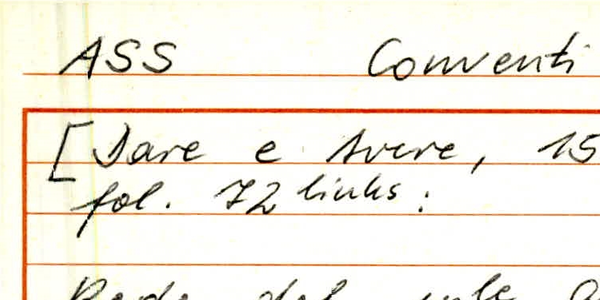 ASS Conventi
[Dare e Avere, 15
fol. 72 links:
del